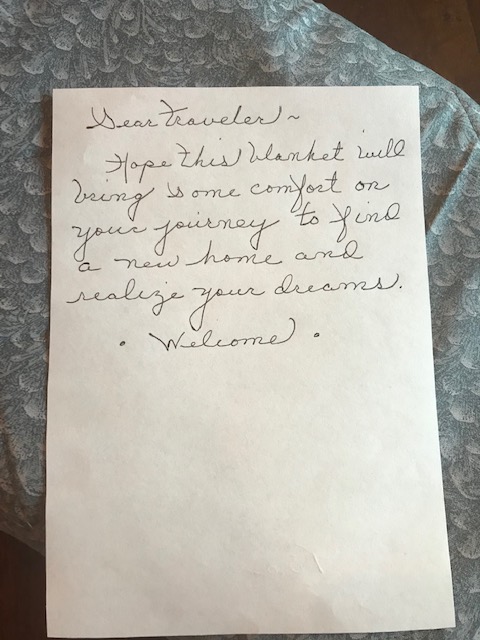 Dear Traveler ~
Hope this blanket will
bring some comfort on
your journey to find
a new home and
realize your dreams.
• Welcome •